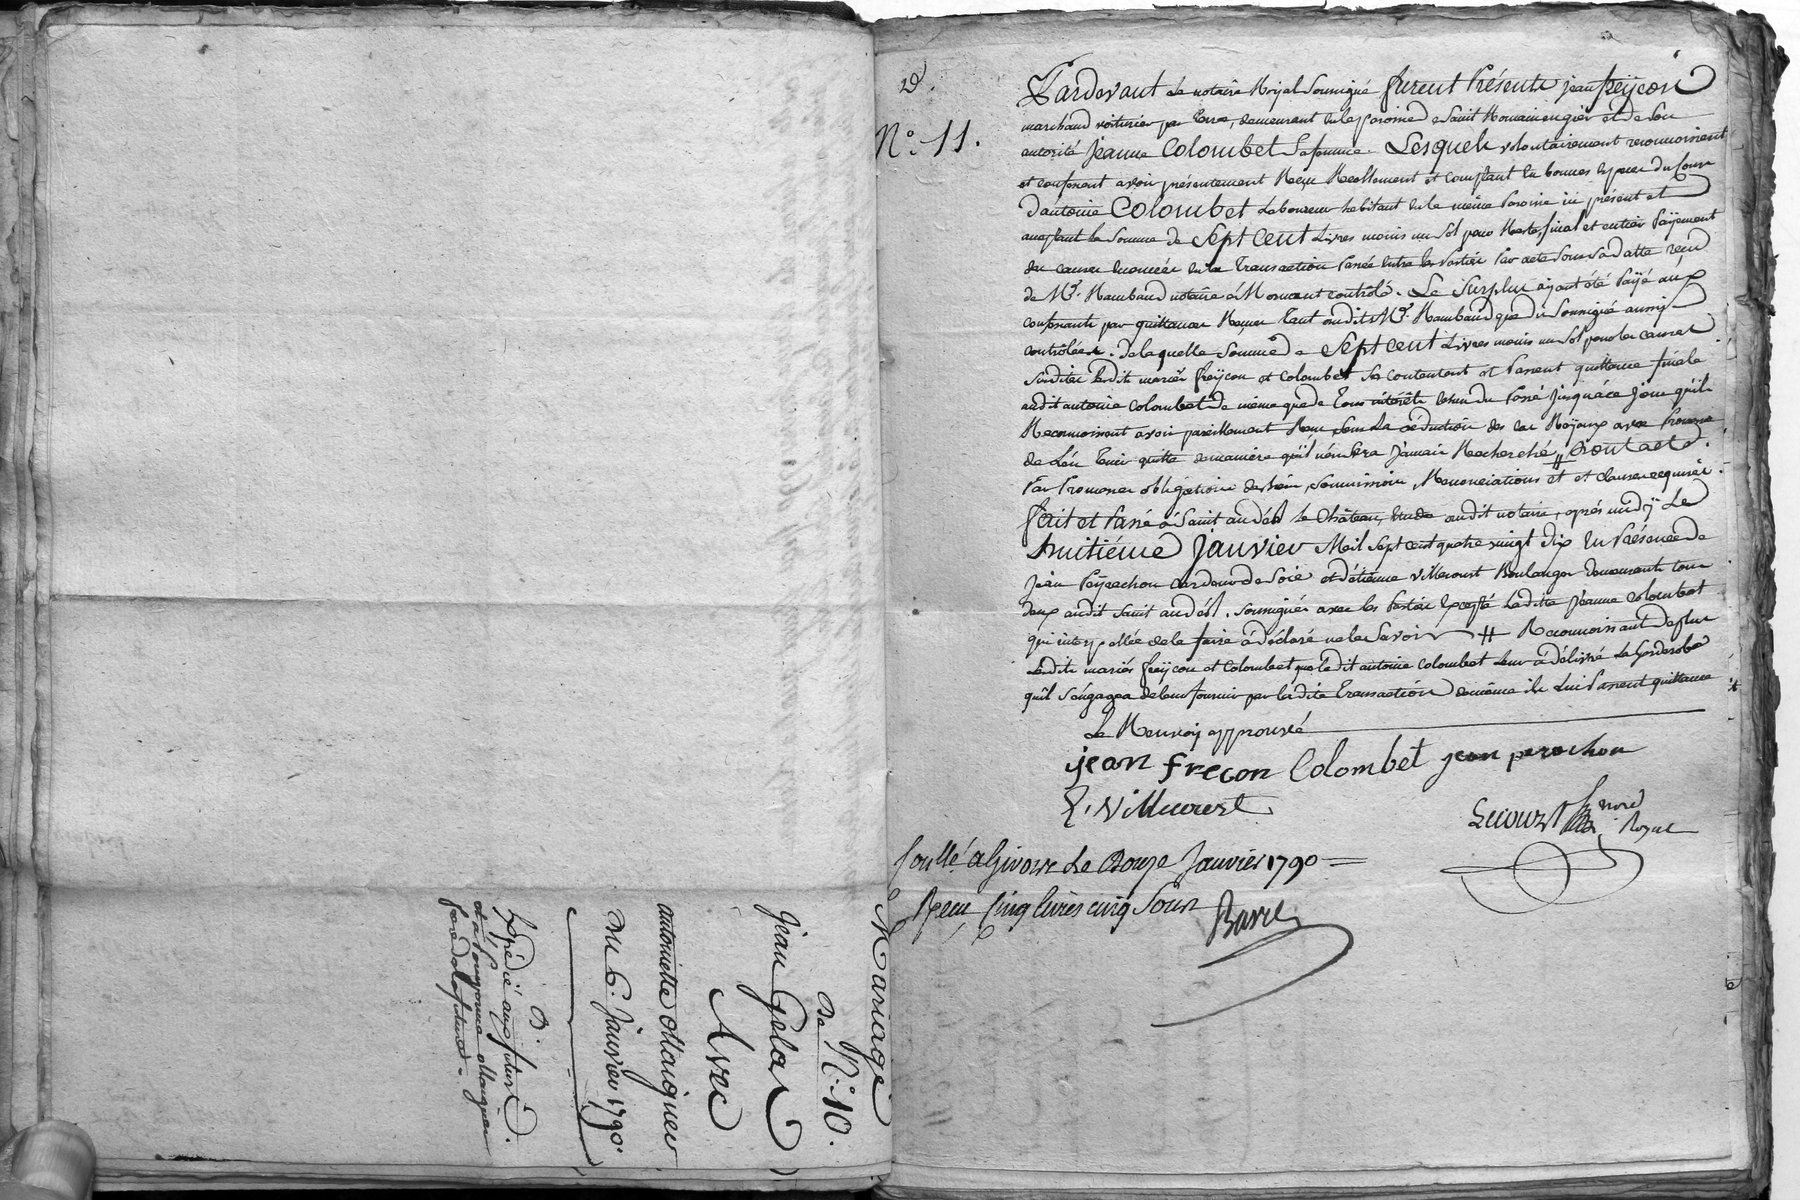 Mariage
De N.º 10.
Jean Gelas
Avec
antoinette Maignier
Du 6. Janvier 1790.
D.
Expédié aux futurs.
et a françoise Maignier
de la future.
D.
N.º 11.
Pardevant Le notaire Royal Soussigné furent Présents jean freÿcon
marchand voiturier par terre, demeurant en la paroisse de Saint Romain en gier et de son
autorité Jeanne Colombet Sa femme. Lesquels volontairement reconnoissent
et confessent avoir présentement Reçu Reellement et comptant en bonnes especes du Cours
D'antoine Colombet Laboureur habitant en la même Paroisse ici présent et
acceptant la Somme de Sept Cent Livres moins un Sol pour Reste, final et entier Paÿement
des causes énoncées en la Transaction Passée entre les Parties Par acte Sous Sa datte reçu
de Me. Rambaud notaire à Mornant contrôlé. Le Surplus aÿant été Païé aux
confessants par quittances Reçues tant dudit Me. Rambaud que du Soussigné aussi
contrôlées. De laquelle Somme de Sept cent Livres moins un Sol pour les causes
Susdites Lesdits mariés freÿcon et Colombet Se contentent et Passent quittance finale
audit antoine Colombet de même que de Tous intérêts du Passé Jusqu'à ce Jour qu'ils
Reconnoissent avoir pareillement Reçus Sous La déduction des Roÿaux avec Promesse
de L'en tenir quitte de manière qu'il n'en Sera Jamais Recherché # Dont acte.
Par Promesses obligations de biens, Soumissions, Renonciations et et clauses requises.
fait et Passé à Saint andéol le Château, Etude dudit notaire, après midÿ Le
huitiéme Janvier Mil Sept cent quatre vingt Dix En Présence de
Jean Peÿrachon cardeur de Soie et d'étienne Villecourt Boulanger demeurants tous
deux audit Saint andéol. Soussignés avec les Parties Excepté Ladite Jeanne Colombet
qui interpellée de le faire à déclaré ne le Savoir # Reconnoissant de plus
Lesdits mariés freÿcon et Colombet que ledit antoine Colombet Leur à délivré La Garderobe
qu'il S'engagea de leur fournir par ladite Transaction de même ils Lui Passent quittance
Le Renvoÿ approuvé
jean frecon Colombet jean perachon
E. Villecourt
Lecourt Nore
Royal
Conllé. a Givors Le Douze Janvier 1790
Reçu Cinq livres cinq Sous
Barel